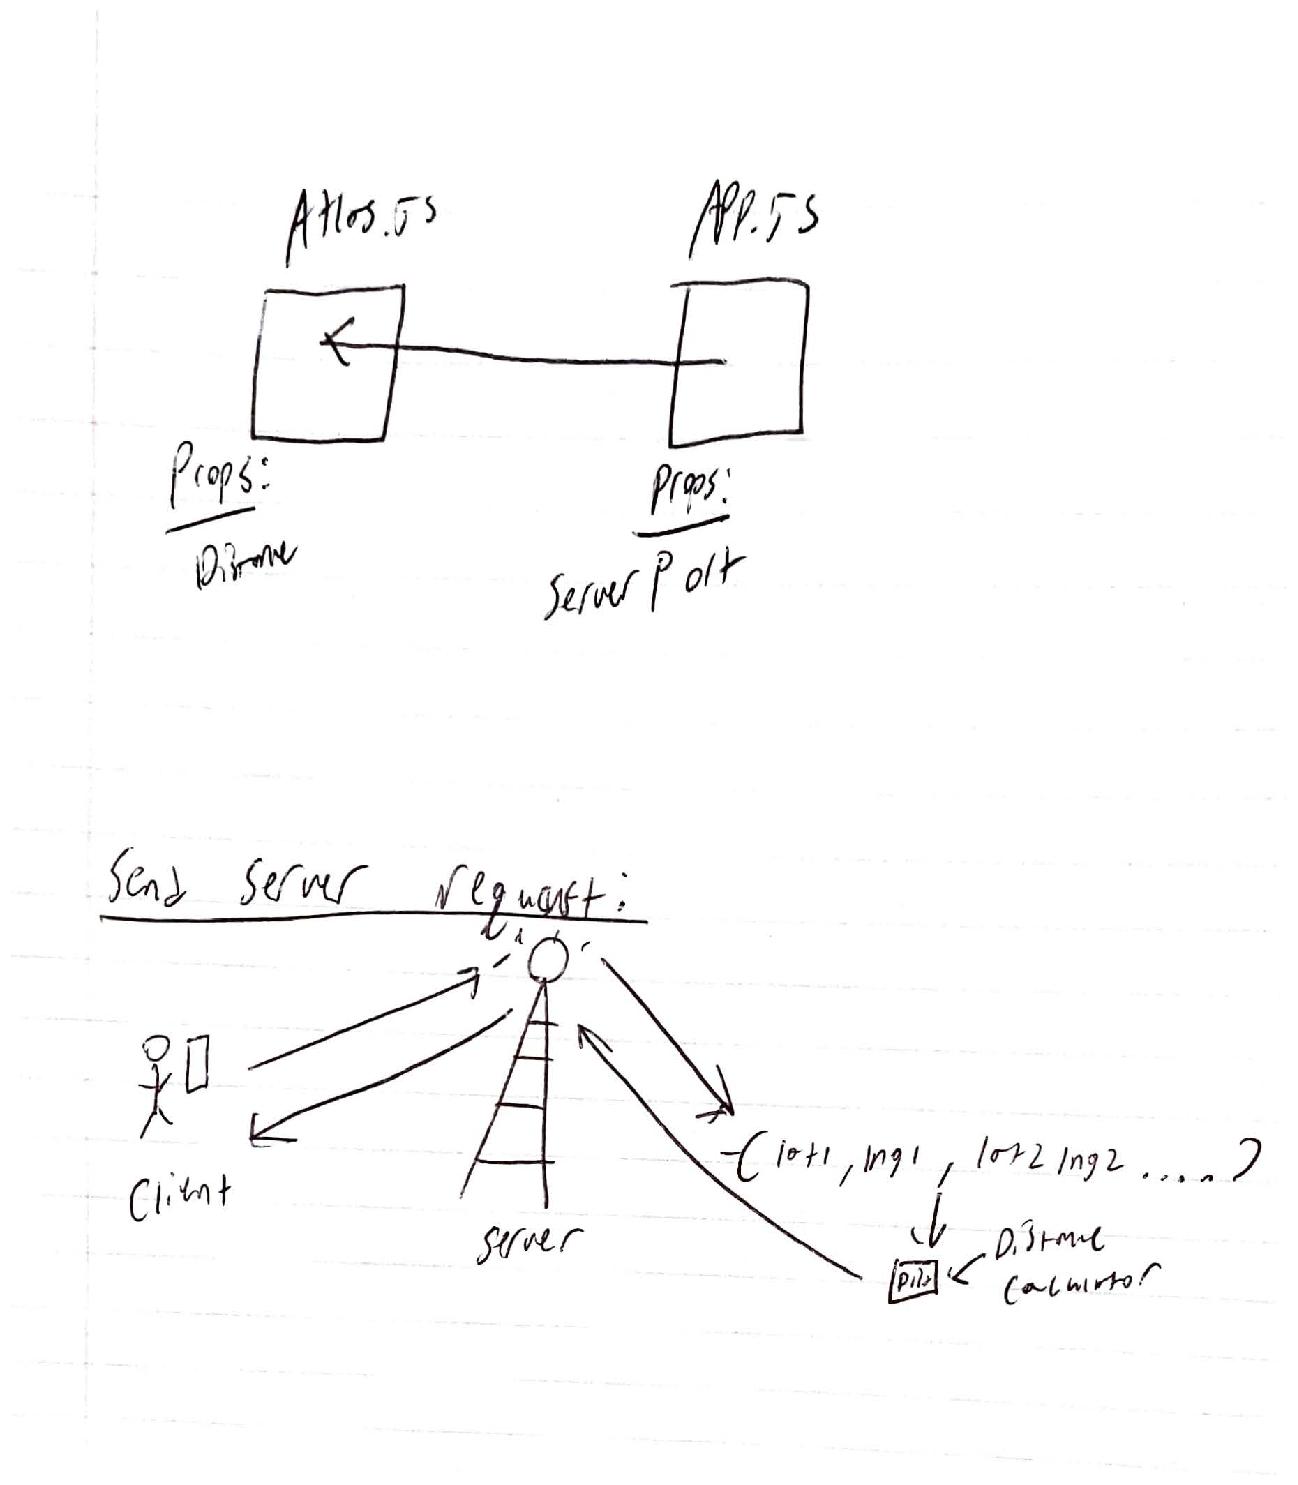 Atlas.JS
APP.JS
Props:
Distance
Props:
Server Port
Send server request:
Client
server
(lat1, lng1, lat2 lng2 .....)
Distance
Calculator